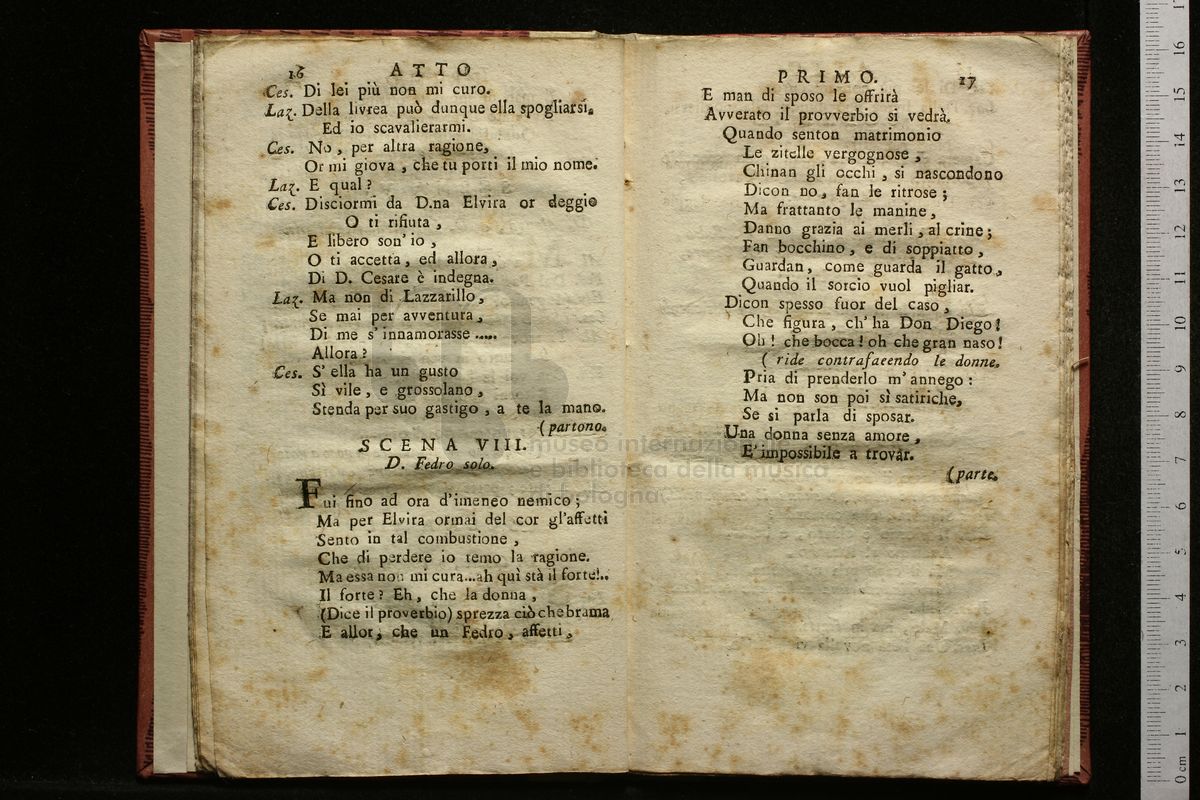 16
ATTO
Ces. Di lei più non mi curo.
Laz. Della livrea può dunque ella spogliarsi.
Ed io scavalierarmi.
Ces. No, per altra ragione,
Or mi giova, che tu porti il mio nome.
Laz. E qual?
Ces. Disciormi da D.na Elvira or deggio
O ti rifiuta,
E libero son' io,
O ti accetta, ed allora,
Di D. Cesare è indegna.
Laz. Ma non di Lazzarillo,
Se mai per avventura,
Di me s' innamorasse .....
Allora?
Ces. S' ella ha un gusto
Sì vile, e grossolano,
Stenda per suo gastigo, a te la mano.
(partono.
SCENA VIII.
D. Fedro solo.
Fui fino ad ora d'imeneo nemico;
Ma per Elvira ormai del cor gl'affetti
Sento in tal combustione,
Che di perdere io temo la ragione.
Ma essa non mi cura...ah quì stà il forte!..
Il forte? Eh, che la donna,
(Dice il proverbio) sprezza ciò che brama
E allor, che un Fedro, affetti,
PRIMO.
17
E man di sposo le offrirà
Avverato il provverbio si vedrà.
Quando senton matrimonio
Le zitelle vergognose,
Chinan gli occhi, si nascondono
Dicon no, fan le ritrose;
Ma frattanto le manine,
Danno grazia ai merli, al crine;
Fan bocchino, e di soppiatto,
Guardan, come guarda il gatto,
Quando il sorcio vuol pigliar.
Dicon spesso fuor del caso,
Che figura, ch' ha Don Diego!
Oh! che bocca! oh che gran naso!
( ride contrafacendo le donne.
Pria di prenderlo m' annego:
Ma non son poi sì satiriche,
Se si parla di sposar.
Una donna senza amore,
E' impossibile a trovar.
(parte.
museo internazionale
e biblioteca della musica
bologna
0 cm 1 2 3 4 5 6 7 8 9 10 11 12 13 14 15 16 17